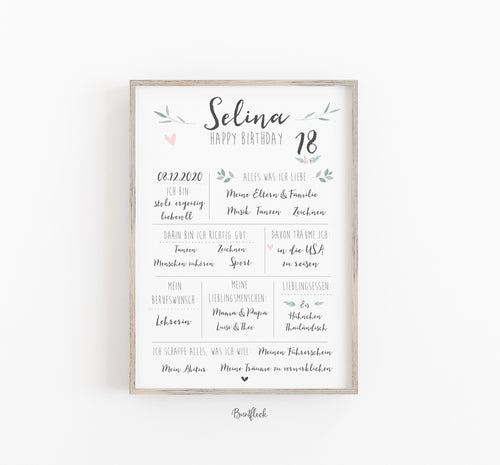 Selina
HAPPY BIRTHDAY 18
08.12.2020
ICH BIN
stolz ergeizig
liebevoll
ALLES WAS ICH LIEBE:
Meine Eltern & Familie
Musik Tanzen Zeichnen
DARIN BIN ICH RICHTIG GUT
Tanzen Zeichnen
Menschen zuhören Sport
DAVON TRÄUME ICH:
in die USA
zu reisen
MEIN
BERUFSWUNSCH
Lehrerin
MEINE
LIEBLINGSMENSCHEN:
Mama & Papa
Luisa & Theo
LIEBLINGSESSEN:
Eis
Hähnchen
Thailändisch
ICH SCHAFFE ALLES, WAS ICH WILL: Meinen Führerschein
Mein Abitur Meine Träume zu verwirklichen
Buntfleck